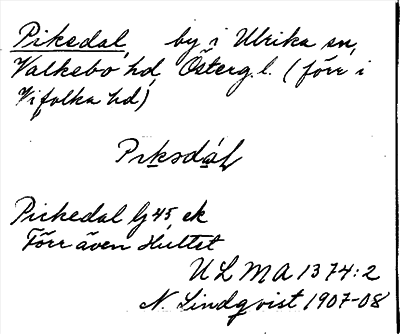 Pikedal, by i Ulrika sn,
Valkebo hd, Österg. l. (förr i
Vifolka hd)
Pɩksdál
Pickedal Lj 45 ek
Förr även Hultet
ULMA 1374:2
N. Lindqvist 1907-08